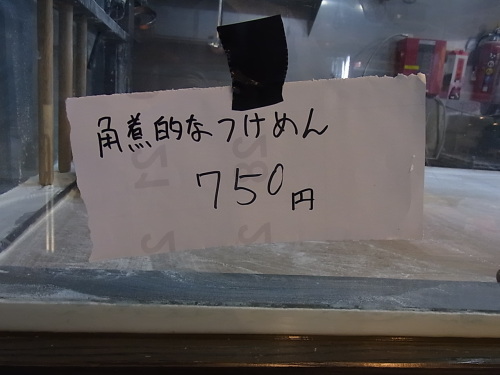 角煮的なつけめん
750円